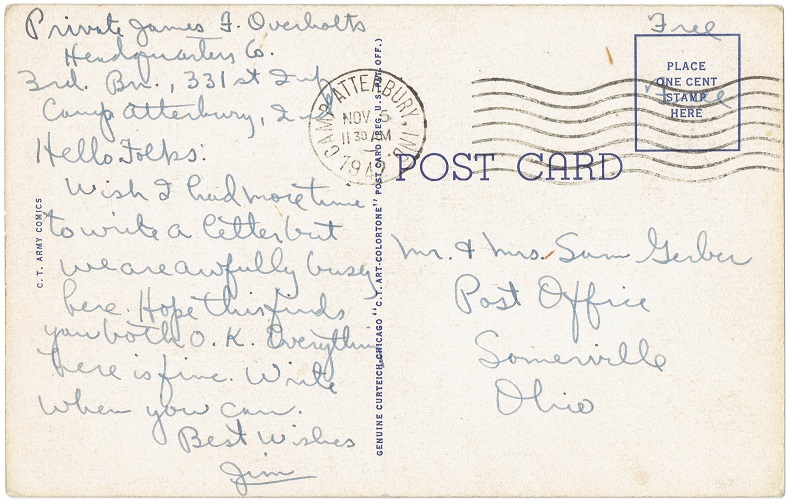 Private James F. Overholts
Headquarters Co.
3rd. Bn., 331st Inf.
Camp Atterbury, Ind
Hello Folks:
Wish I had more time
to write a letter but
we are awfully busy
here. Hope this finds
you both O. K. Everything
here is fine. Write
when you can.
Best Wishes
Jim
C. T. ARMY COMICS
GENUINE CURTEICH-CHICAGO "C. T. ART-COLORTONE" POST CARD (REG. U. S. PAT. OFF.)
CAMP ATTERBURY, IND.
NOV 5
11 30 AM
1942
Free
PLACE
ONE CENT
STAMP
HERE
Free
POST CARD
Mr. & Mrs. Sam Gerber
Post Office
Somerville
Ohio